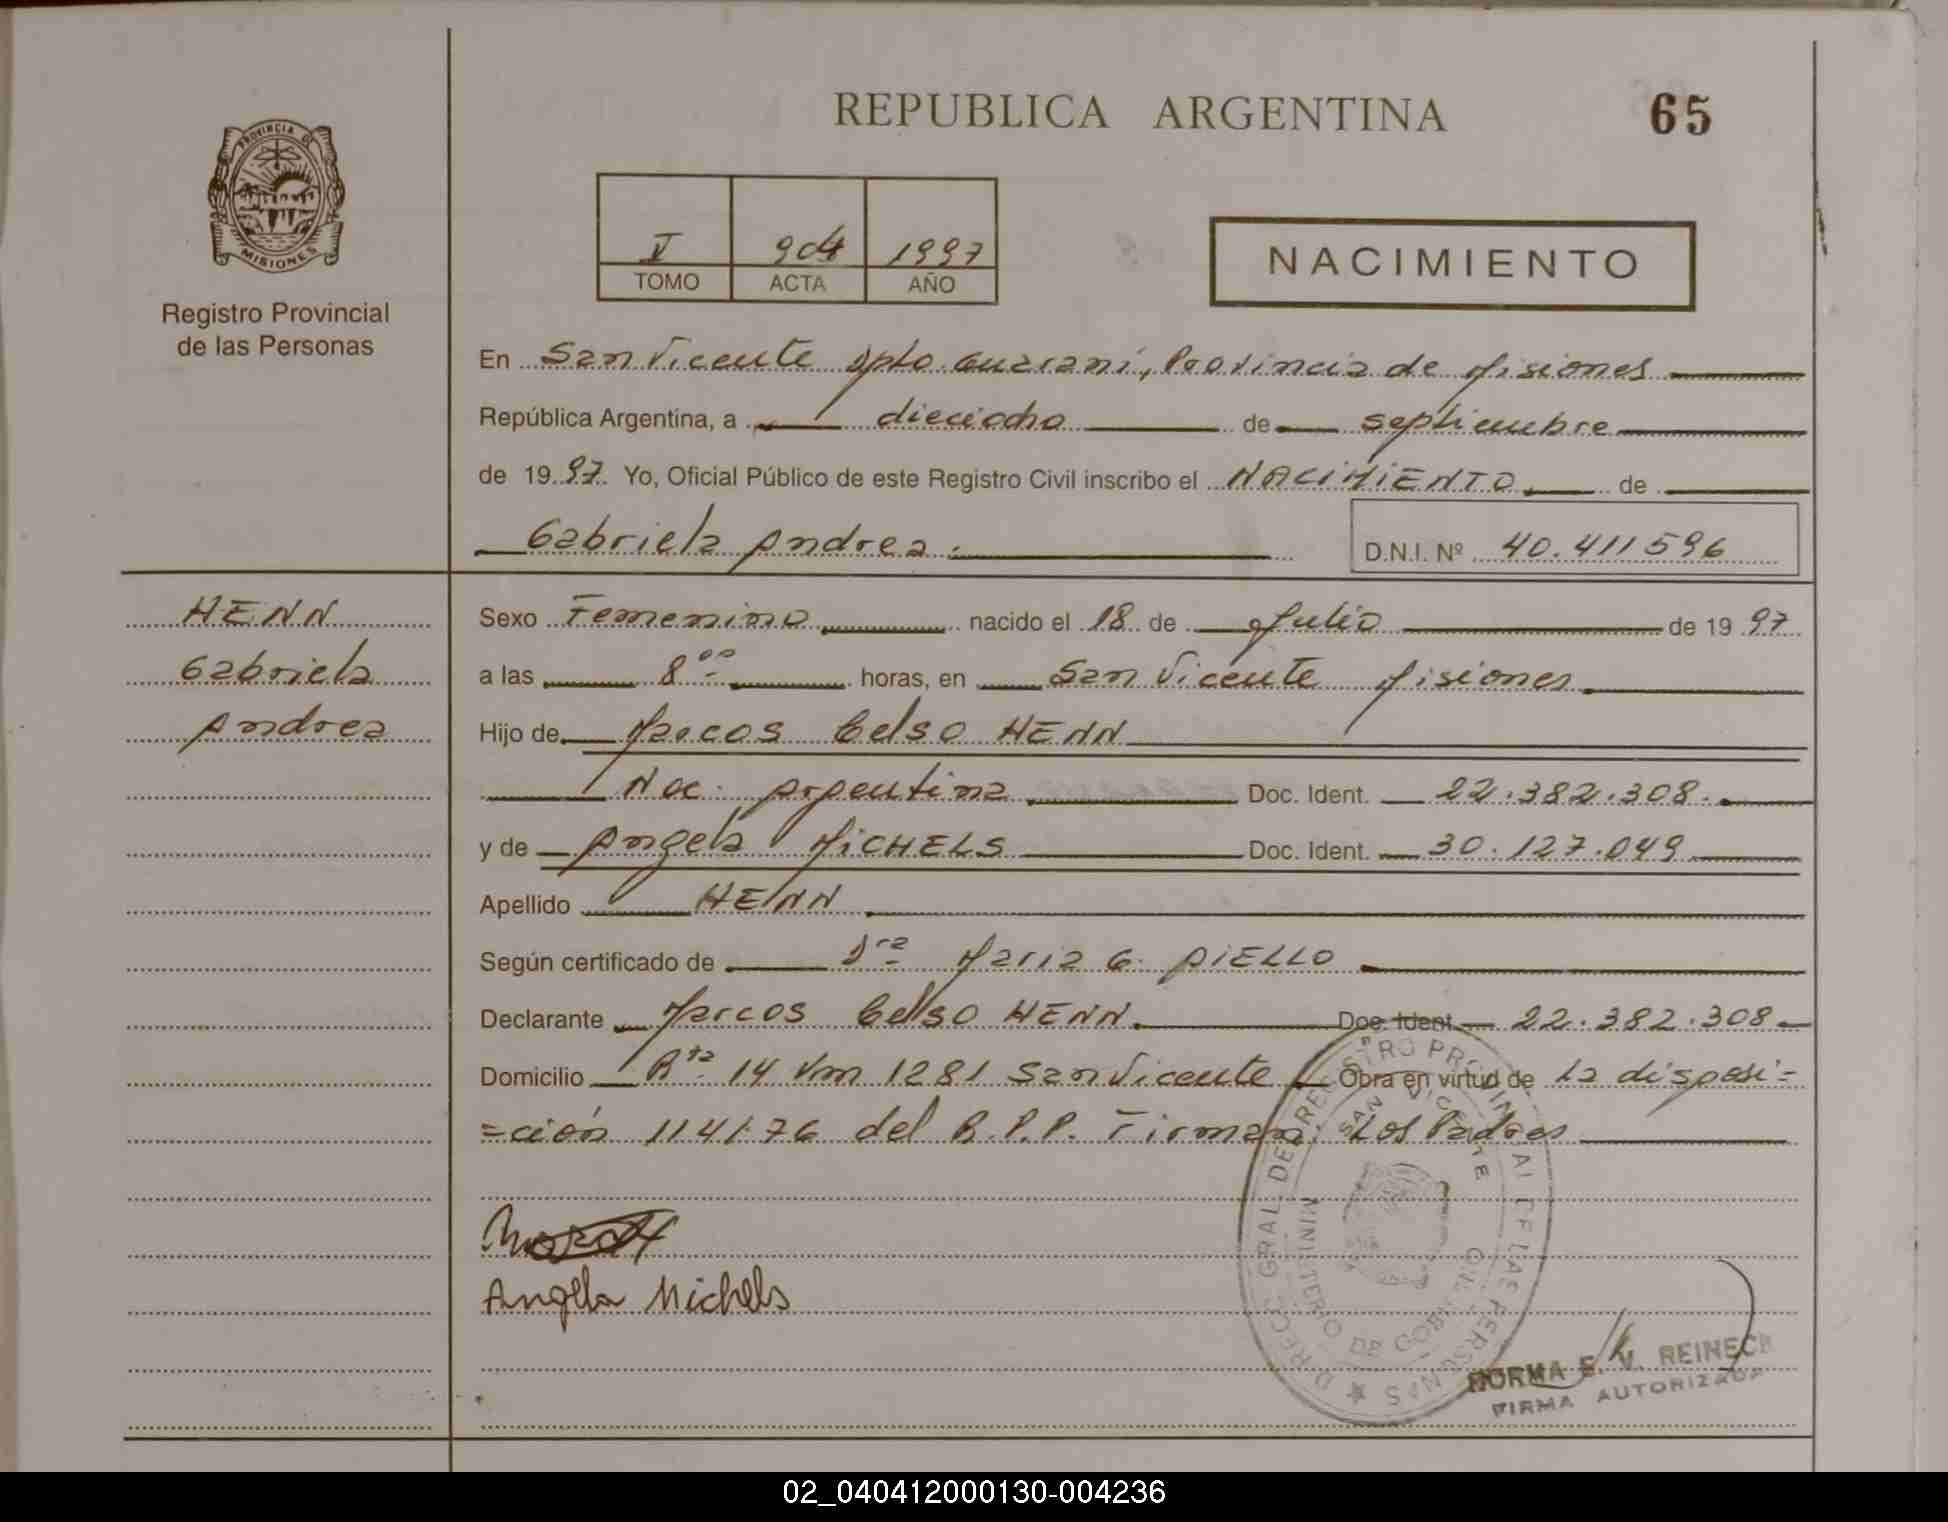 REPUBLICA ARGENTINA
65
PROVINCIA DE
MISIONES
Registro Provincial
de las Personas
V 904 1997
TOMO ACTA AÑO
NACIMIENTO
En San Vicente Dpto. Guaraní, Provincia de Misiones
República Argentina, a dieciocho de septiembre
de 1997. Yo, Oficial Público de este Registro Civil inscribo el NACIMIENTO de
Gabriela Andrea. D.N.I. Nº 40.411596
HENN
Gabriela
Andrea
Sexo Femenino nacido el 18 de Julio de 1997
a las 8 00 horas, en San Vicente Misiones
Hijo de Marcos Celso HENN
Nac. Argentina Doc. Ident. 22.382.308.
y de Angela MICHELS Doc. Ident. 30.127.049
Apellido HENN
Según certificado de Dra Maria G. AIELLO
Declarante Marcos Celso HENN. Doc. Ident. 22.382.308
Domicilio Rta 14 Km 1281 San Vicente Obra en virtud de La disposi=
=ción 114/76 del R.P.P. Firman: Los Padres
Angela Michels
DIRECC. GRAL. DE REGISTRO PROVINCIAL DE LAS PERSONAS
SAN VICENTE
MINISTERIO DE GOBIERNO
NORMA E. V. REINECK
FIRMA AUTORIZADA
02_040412000130-004236